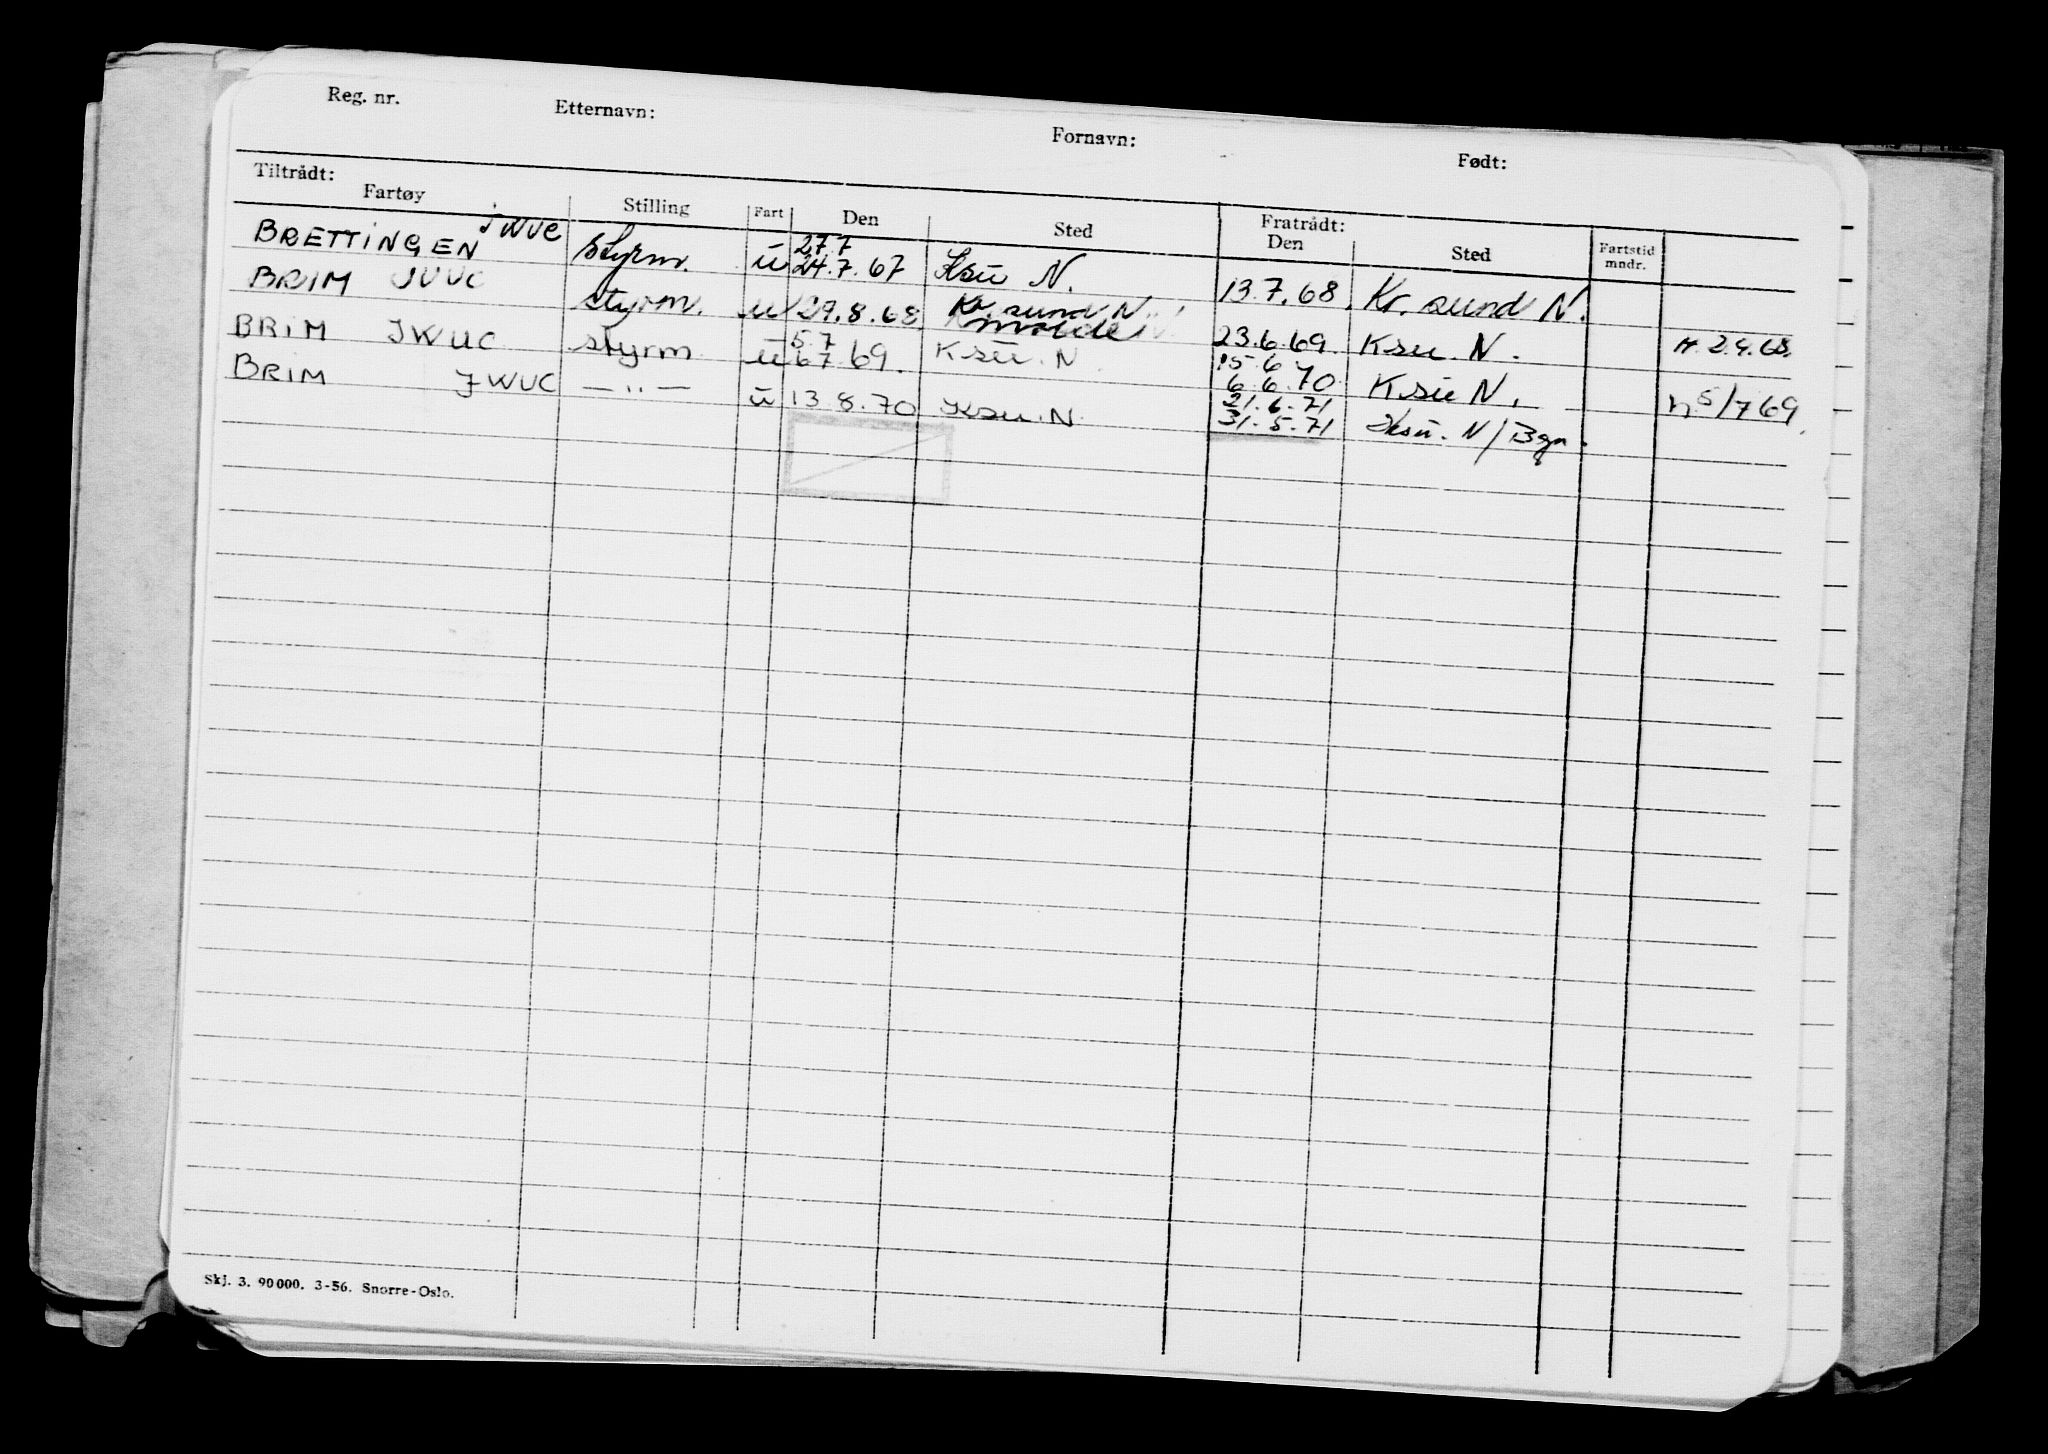 Reg. nr. Etternavn: Fornavn: Født:
Tiltrådt: Fratrådt:
Fartøy Stilling Fart Den Sted Den Sted Fartstid mndr.
27.7
BRETTINGEN JWUC styrm. u 24.7.67 Ksu N. 13.7.68 Kr. sund N.
BRIM JWUC styrm. u 29.8.68 Kr. sund N 23.6.69 Ksu. N. 2.9.68.
Molde
5.7 15.6
BRIM JWUC styrm u 6.7.69. Ksu. N. 6.6.70 Ksu N. 5/7 69
21.6.71
BRIM JWUC — " — u 13.8.70 Ksu. N 31.5.71 Ksu. N/Bgn.
Skj. 3. 90 000. 3-56. Snorre-Oslo.